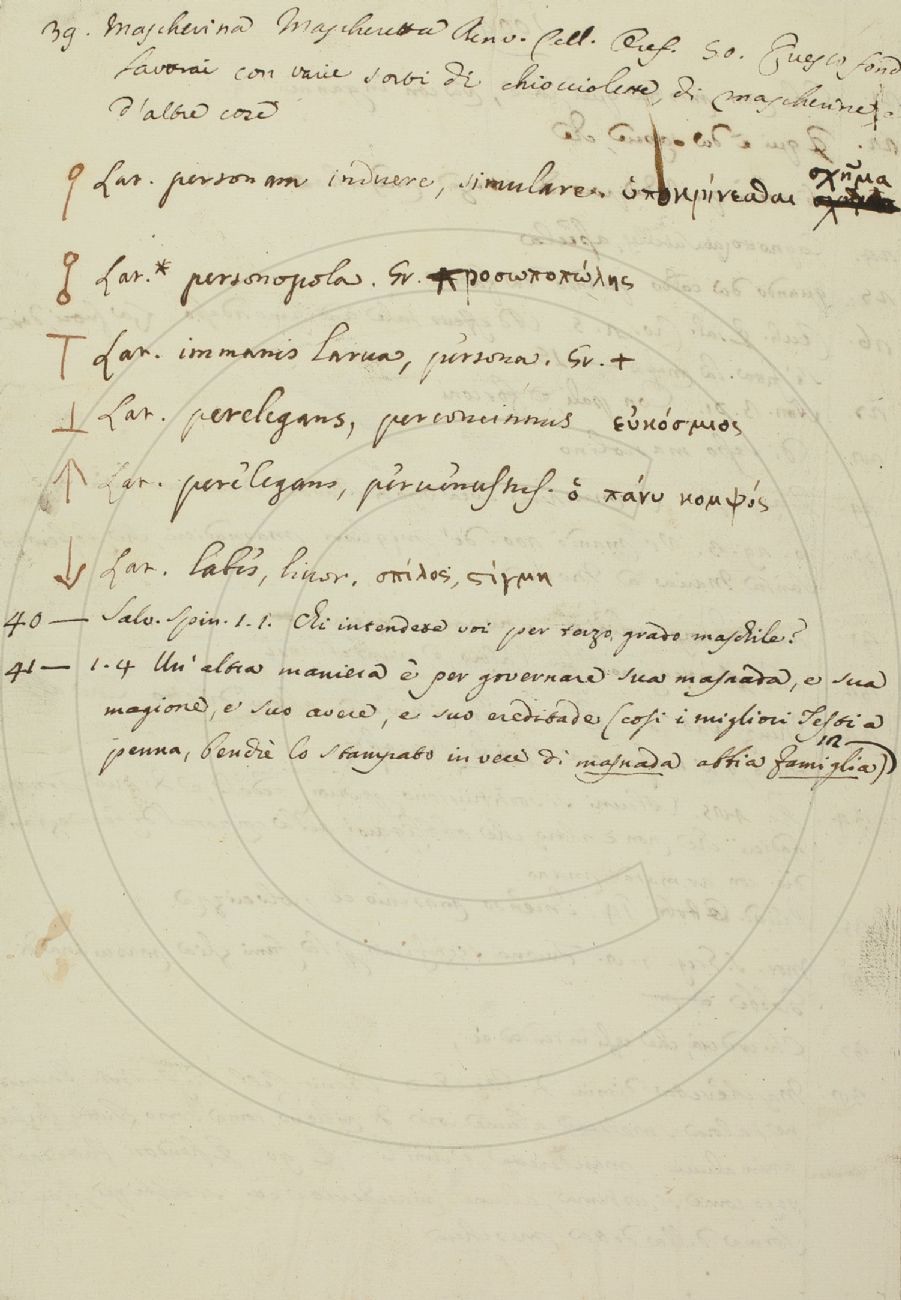 39. Mascherina Mascheretta Benv. Cell. Oref. 50. Questo fond
lavorai con varie sorti di chiocciolette, di mascherine, e
d'altre cose
Lat. personam induere, simulare. ὑποκρίνεσθαι σχῆμα
Lat.* personopola. Gr. προσωποπώλης
Lat. immanis larva, persona. Gr. +
Lat. perelegans, perconcinnus εὐκόσμιος
Lat. perelegans, pervenustus. ὁ πάνυ κομψός
Lat. labes, livor, σπίλος, στίγμη
40 — Salv. Spin. 1.1. Chi intendete voi per terzo grado maschile?
41 — 1.4 Un' altra maniera è per governare sua masnada, e sua
magione, e suo avere, e suo ereditade (così i migliori Testi a
penna, benchè lo stampato in vece di masnada abbia famiglia)